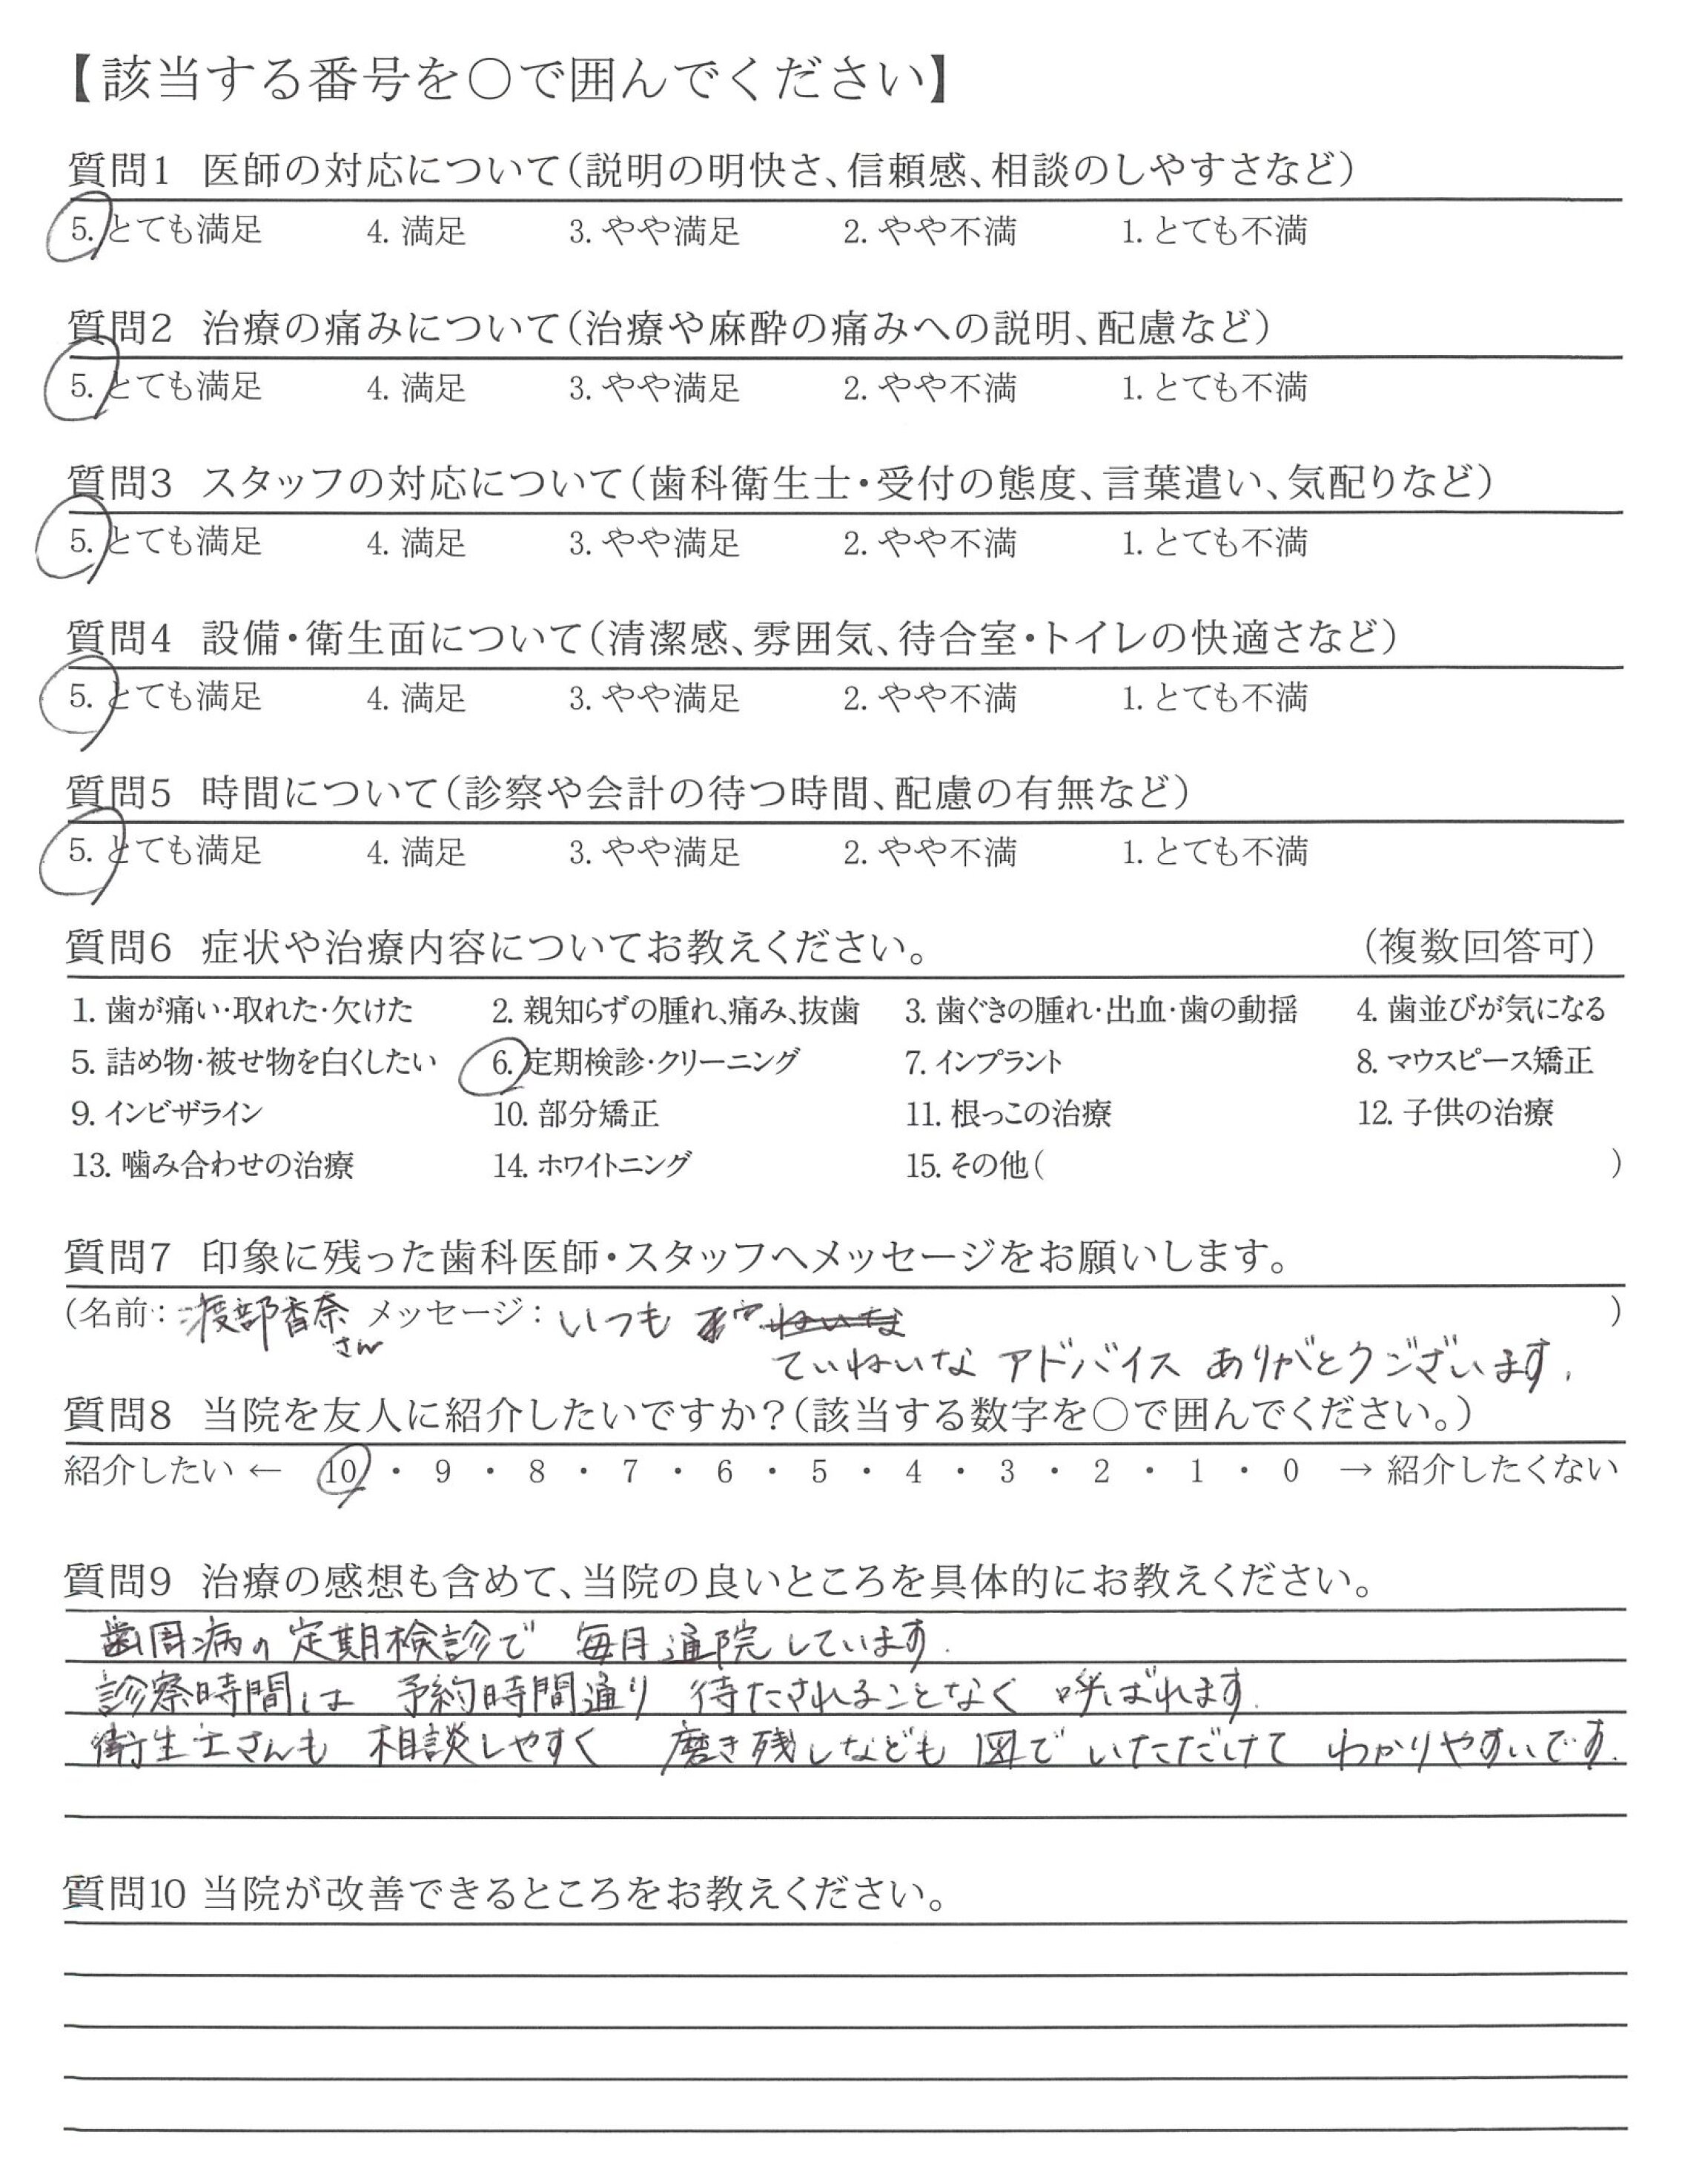 【該当する番号を○で囲んでください】
質問1 医師の対応について(説明の明快さ、信頼感、相談のしやすさなど)
5. とても満足 4. 満足 3. やや満足 2. やや不満 1. とても不満
質問2 治療の痛みについて(治療や麻酔の痛みへの説明、配慮など)
5. とても満足 4. 満足 3. やや満足 2. やや不満 1. とても不満
質問3 スタッフの対応について(歯科衛生士・受付の態度、言葉遣い、気配りなど)
5. とても満足 4. 満足 3. やや満足 2. やや不満 1. とても不満
質問4 設備・衛生面について(清潔感、雰囲気、待合室・トイレの快適さなど)
5. とても満足 4. 満足 3. やや満足 2. やや不満 1. とても不満
質問5 時間について(診察や会計の待つ時間、配慮の有無など)
5. とても満足 4. 満足 3. やや満足 2. やや不満 1. とても不満
質問6 症状や治療内容についてお教えください。 (複数回答可)
1. 歯が痛い・取れた・欠けた 2. 親知らずの腫れ、痛み、抜歯 3. 歯ぐきの腫れ・出血・歯の動揺 4. 歯並びが気になる
5. 詰め物・被せ物を白くしたい 6. 定期検診・クリーニング 7. インプラント 8. マウスピース矯正
9. インビザライン 10. 部分矯正 11. 根っこの治療 12. 子供の治療
13. 噛み合わせの治療 14. ホワイトニング 15. その他( )
質問7 印象に残った歯科医師・スタッフへメッセージをお願いします。
(名前: 渡部香奈さん メッセージ: いつも )
ていねいな アドバイス ありがとうございます.
質問8 当院を友人に紹介したいですか?(該当する数字を○で囲んでください。)
紹介したい ← 10 ・ 9 ・ 8 ・ 7 ・ 6 ・ 5 ・ 4 ・ 3 ・ 2 ・ 1 ・ 0 → 紹介したくない
質問9 治療の感想も含めて、当院の良いところを具体的にお教えください。
歯周病の定期検診で 毎月通院しています.
診察時間は 予約時間通り 待たされることなく 呼ばれます.
衛生士さんも 相談しやすく 磨き残しなども 図で いただけて わかりやすいです.
質問10 当院が改善できるところをお教えください。